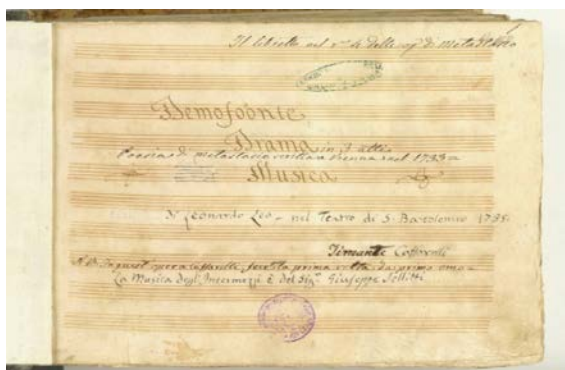 Il libretto nel v. 4 delle op. di Metastasio
Demofoonte
Drama in 3 atti
Poesia di Metastasio scritta a Vienna nel 1733
Musica
Di Leonardo Leo - nel Teatro di S. Bartolomeo 1735.
Timante Caffarelli
N.B. In quest'opera Caffarelli fece la prima volta da primo uomo
La Musica degl'Intermezzi è del Sig. Giuseppe Sellitti